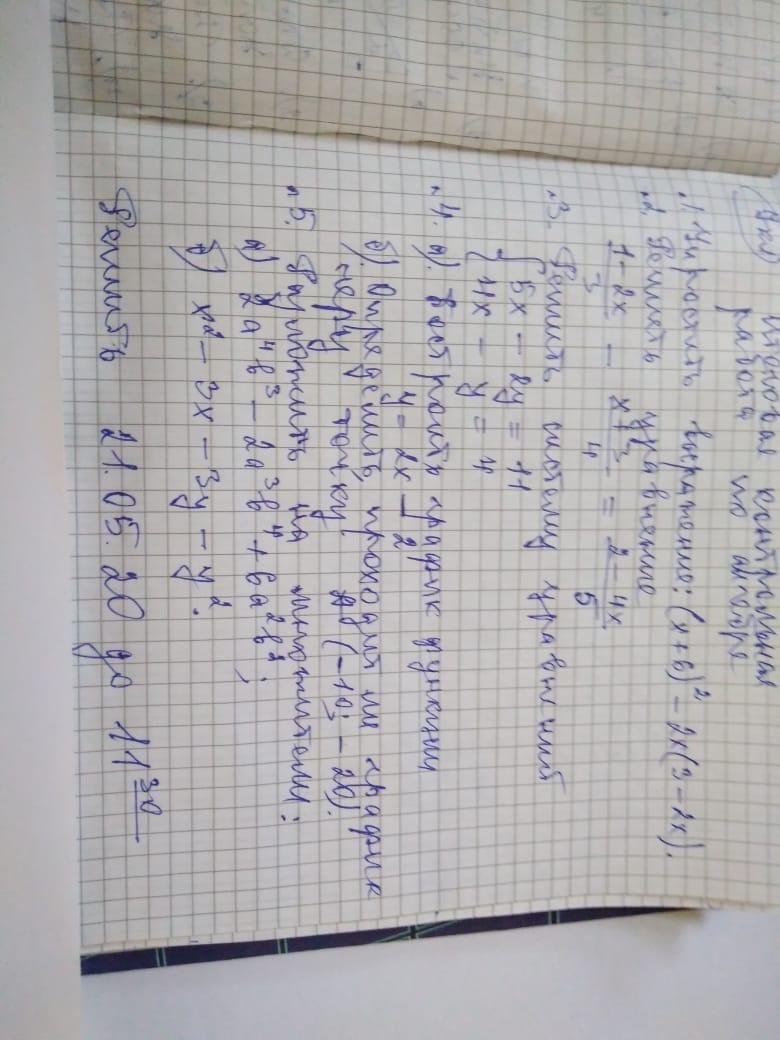 Итоговая контрольная
работа по алгебре
1. Упростить выражение: (x+6)² - 2x(3-2x).
2. Решить уравнение
(1-2x)/3 - (x+3)/4 = (2-4x)/5
3. Решить систему уравнений
{ 5x - 2y = 11
4x - y = 4
4. а). Построить график функции
y = 2x - 2
б). Определить, проходит ли график
через точку А (-10; -20).
5. Разложить на множители:
а) 2a⁴b³ - 2a³b⁴ + 6a²b²;
б) x² - 3x - 3y - y².
Решить 21.05.20 до 11³⁰